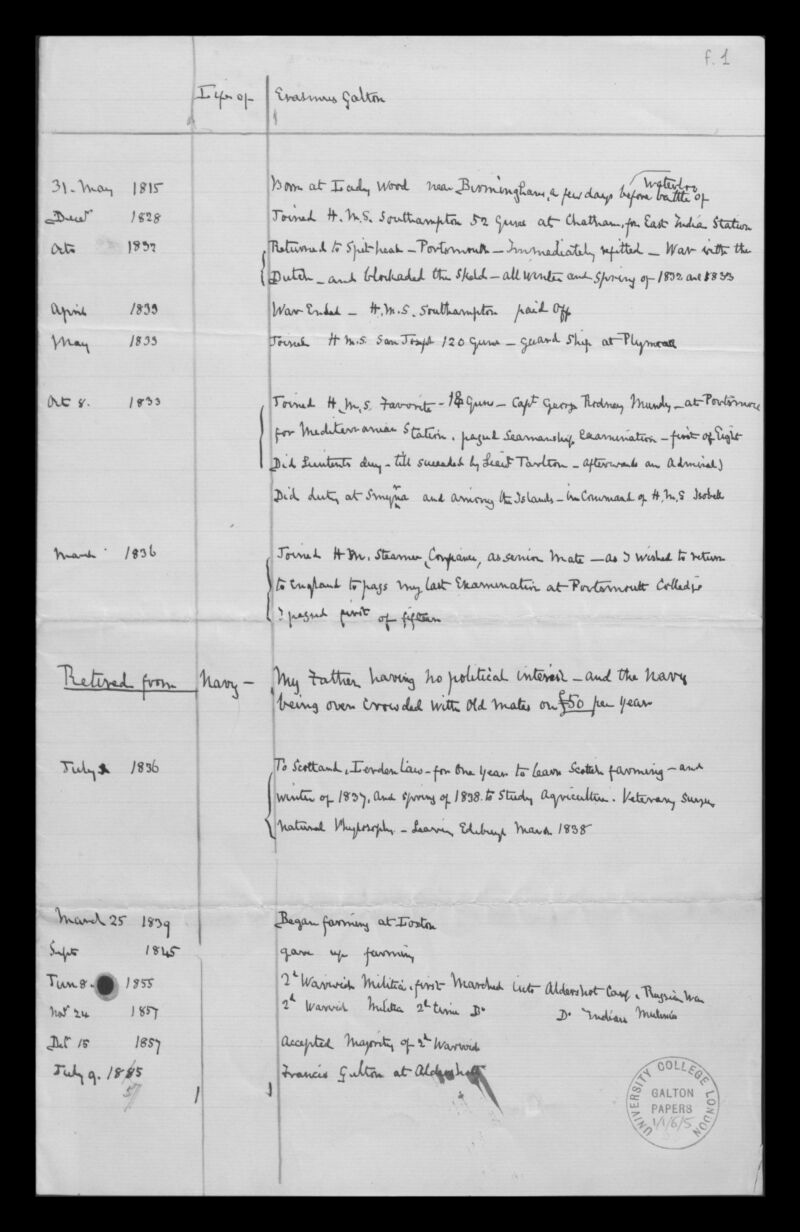 f. 1
Life of Erasmus Galton
31. May 1815 Born at Lady Wood near Birmingham, a few days before battle of Waterloo
Decr 1828 Joined H.M.S. Southampton 52 Guns at Chatham, for East India Station
Octr 1832 Returned to Spithead – Portsmouth – Immediately refitted – War with the
Dutch – and blockaded the Sheld – all winter and Spring of 1832 and 1833
April 1833 War Ended – H.M.S. Southampton paid off
May 1833 Joined H.M.S. San Joseph 120 Guns – guard Ship at Plymouth
Octr 8. 1833 Joined H.M.S. Favorite – 18 Guns – Capt George Rodney Mundy – at Portsmouth
for Mediterranean Station. passed Seamanship Examination – first of Eight
Did Lieutents duty – till succeeded by Lieut Tarlton – afterwards an Admiral)
Did duty at Smyrna and among the Islands – in Command of H.M.S Isobell
March 1836 Joined H.M. Steamer, Confiance, as senior Mate – as I wished to return
to England to pass my last Examination at Portsmouth Colledge
I passed first of fifteen
Retired from Navy – My Father having no political interest – and the Navy
being over crowded with old mates on £50 per year
July 1836 To Scotland, – for One year to learn Scotch farming – and
winter of 1837, and spring of 1838 to Study Agriculture. Veterary
Natural Phylosophy – Leaving Edinburgh March 1838
March 25 1839 Began farming at Loxton
Septr 1845 gave up farming
June 8. 1855 2d Warwick Militia, first Marched into Aldershot Camp, Russian War
Novr 24 1857 2d Warwick Militia 2d time Do Do Indian Mutinies
Dec 15 1857 Accepted Majority of 2d Warwick
July 9. 1855 Francis Galton at Aldershott
57
UNIVERSITY COLLEGE LONDON
GALTON
PAPERS
1/1/6/5